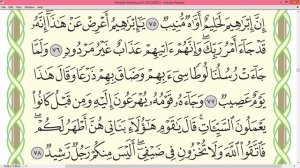 Mushaf Madina.pdf (SECURED) - Adobe Reader
إِنَّ إِبْرَٰهِيمَ لَحَلِيمٌ أَوَّٰهٌ مُّنِيبٌ ٧٥ يَٰٓإِبْرَٰهِيمُ أَعْرِضْ عَنْ هَٰذَآ إِنَّهُۥ
قَدْ جَآءَ أَمْرُ رَبِّكَ وَإِنَّهُمْ ءَاتِيهِمْ عَذَابٌ غَيْرُ مَرْدُودٍ ٧٦ وَلَمَّا
جَآءَتْ رُسُلُنَا لُوطًا سِيٓءَ بِهِمْ وَضَاقَ بِهِمْ ذَرْعًا وَقَالَ هَٰذَا
يَوْمٌ عَصِيبٌ ٧٧ وَجَآءَهُۥ قَوْمُهُۥ يُهْرَعُونَ إِلَيْهِ وَمِن قَبْلُ كَانُوا۟
يَعْمَلُونَ ٱلسَّيِّـَٔاتِ قَالَ يَٰقَوْمِ هَٰٓؤُلَآءِ بَنَاتِى هُنَّ أَطْهَرُ لَكُمْ
فَٱتَّقُوا۟ ٱللَّهَ وَلَا تُخْزُونِ فِى ضَيْفِىٓ أَلَيْسَ مِنكُمْ رَجُلٌ رَّشِيدٌ ٧٨